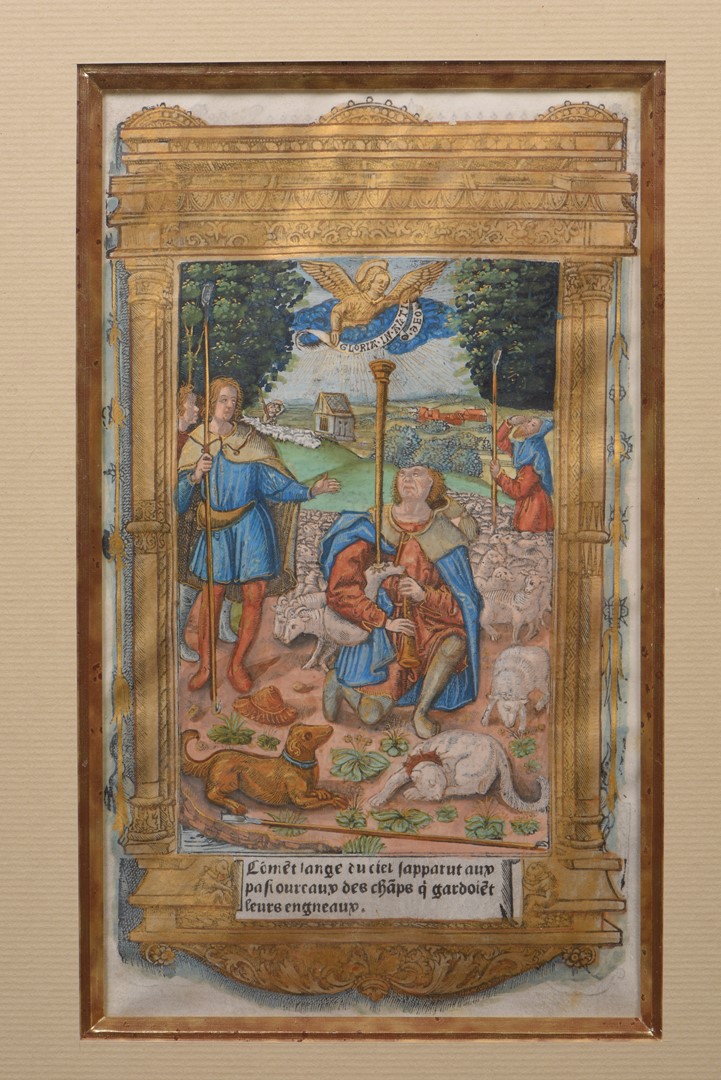 GLORIA·IN·ALTI
O·DEO
Cōmēt lange du ciel sapparut aux
pastoureaux des chāps q̄ gardoiēt
leurs engneaux.